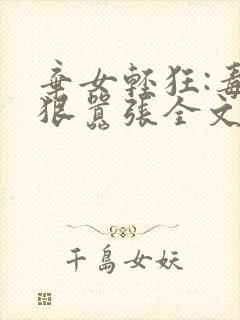 棄女輕狂:毒
狠囂張全文
千島女妖